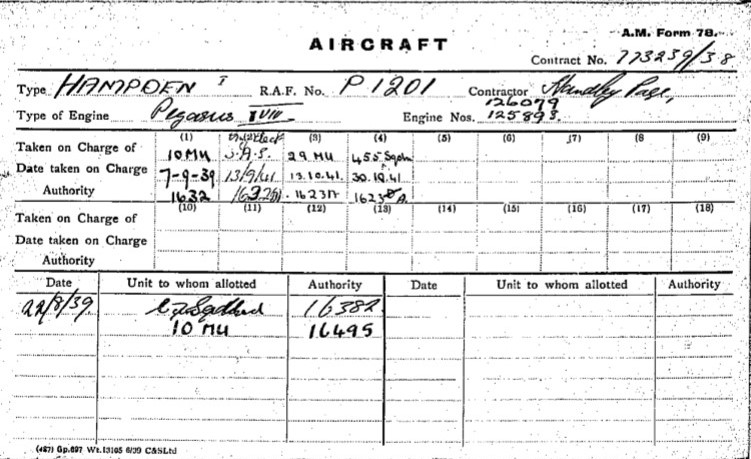 A.M. Form 78.
AIRCRAFT
Contract No. 773239/38
Type HAMPDEN I R.A.F. No. P1201 Contractor Handley Page,
Type of Engine Pegasus XVIII Engine Nos. 126079 125893
(1) (3) (4) (5) (6) (7) (8 (9)
Taken on Charge of 10 MU 29 MU 455 Sqdn
Date taken on Charge 7-9-39 13/9/41 13.10.41. 30.10.41.
Authority 1632 1623A
(10) (11) (12) (13) (14) (15) (16) (17) (18)
Taken on Charge of
Date taken on Charge
Authority
Date Unit to whom allotted Authority Date Unit to whom allotted Authority
22/8/39. 16382
10 MU 16495
(427) Gp.697 Wt.13105 6/39 C&SLtd